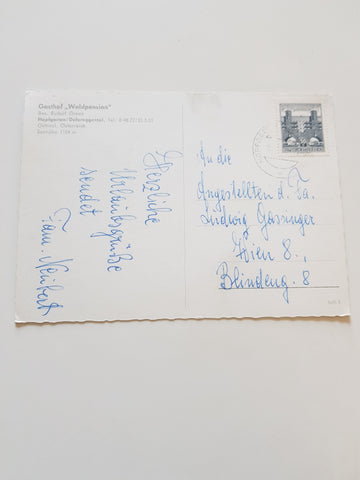 Gasthof „Waldpension"
Bes. Rudolf
Hopfgarten/Defereggental, Tel.
Osttirol, Österreich
Seehöhe 1104 m
Herzliche
Urlaubsgrüße
sendet
Fam. Neubert
An die
Angestellten d. Fa.
Ludwig Gassinger
Wien 8.,
Blindeng. 8